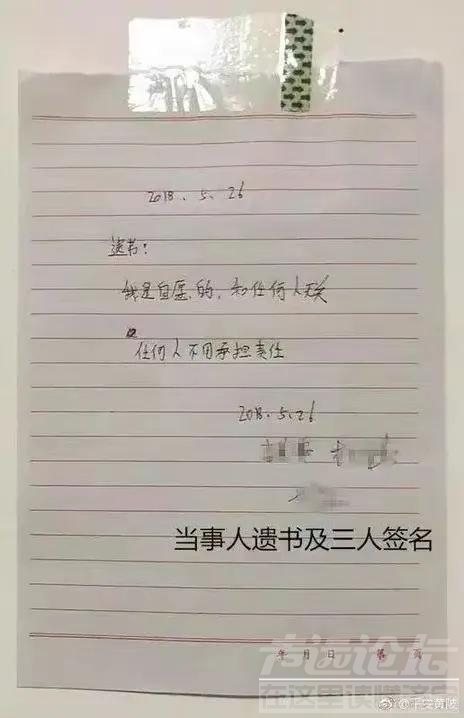 2018.5.26
遗书:
我是自愿的,和任何人无关
任何人不用承担责任
2018.5.26
当事人遗书及三人签名
年 月 日 第 页
在这里读懂
@下交黄陂